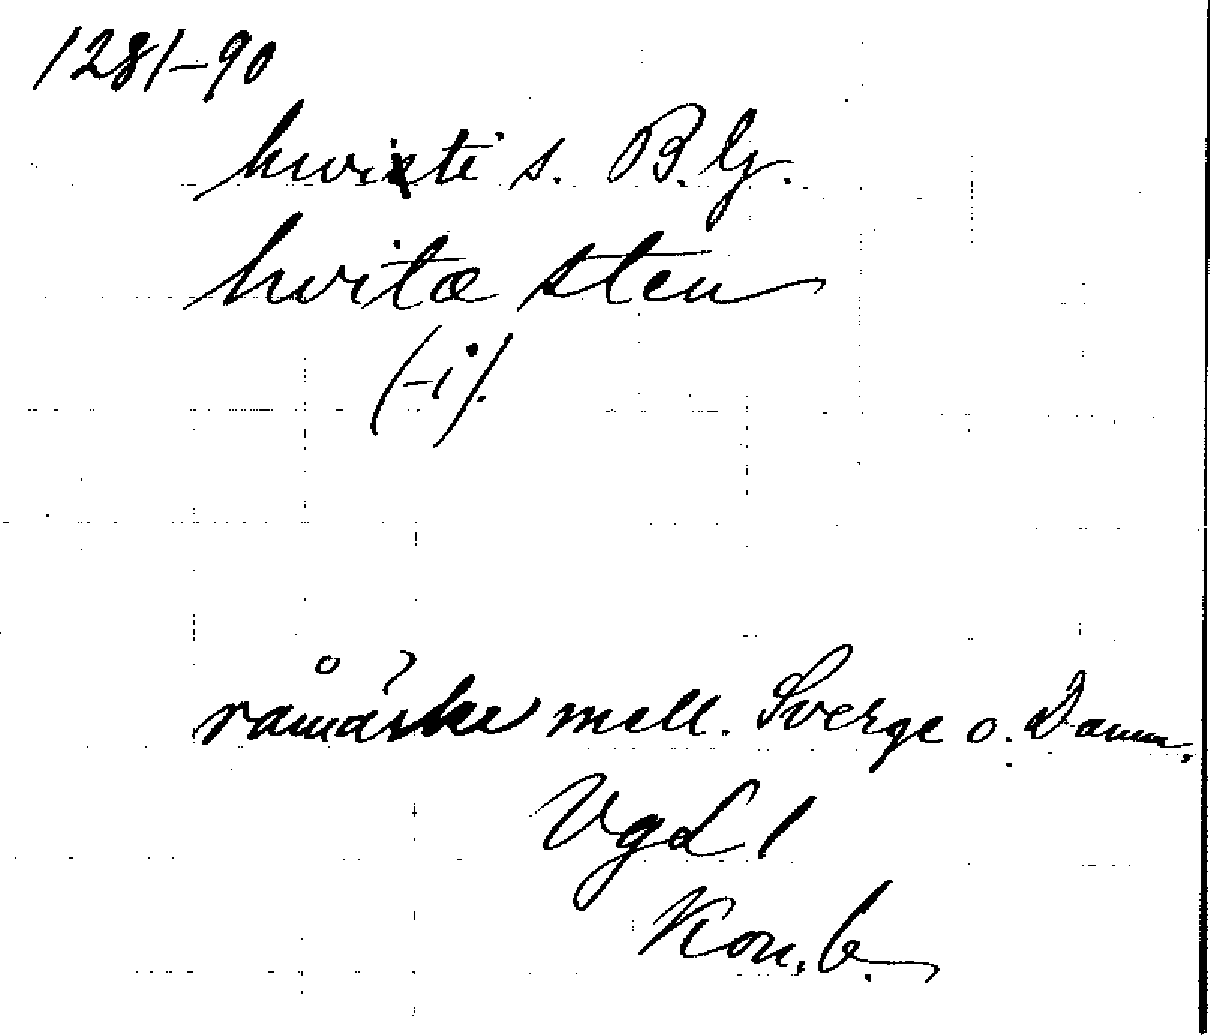 1281-90
hwitti s. B.G.
hwitæ sten
(-i).
råmärke mell. Sverge o. Danm.
VgL 1
Kon. b.